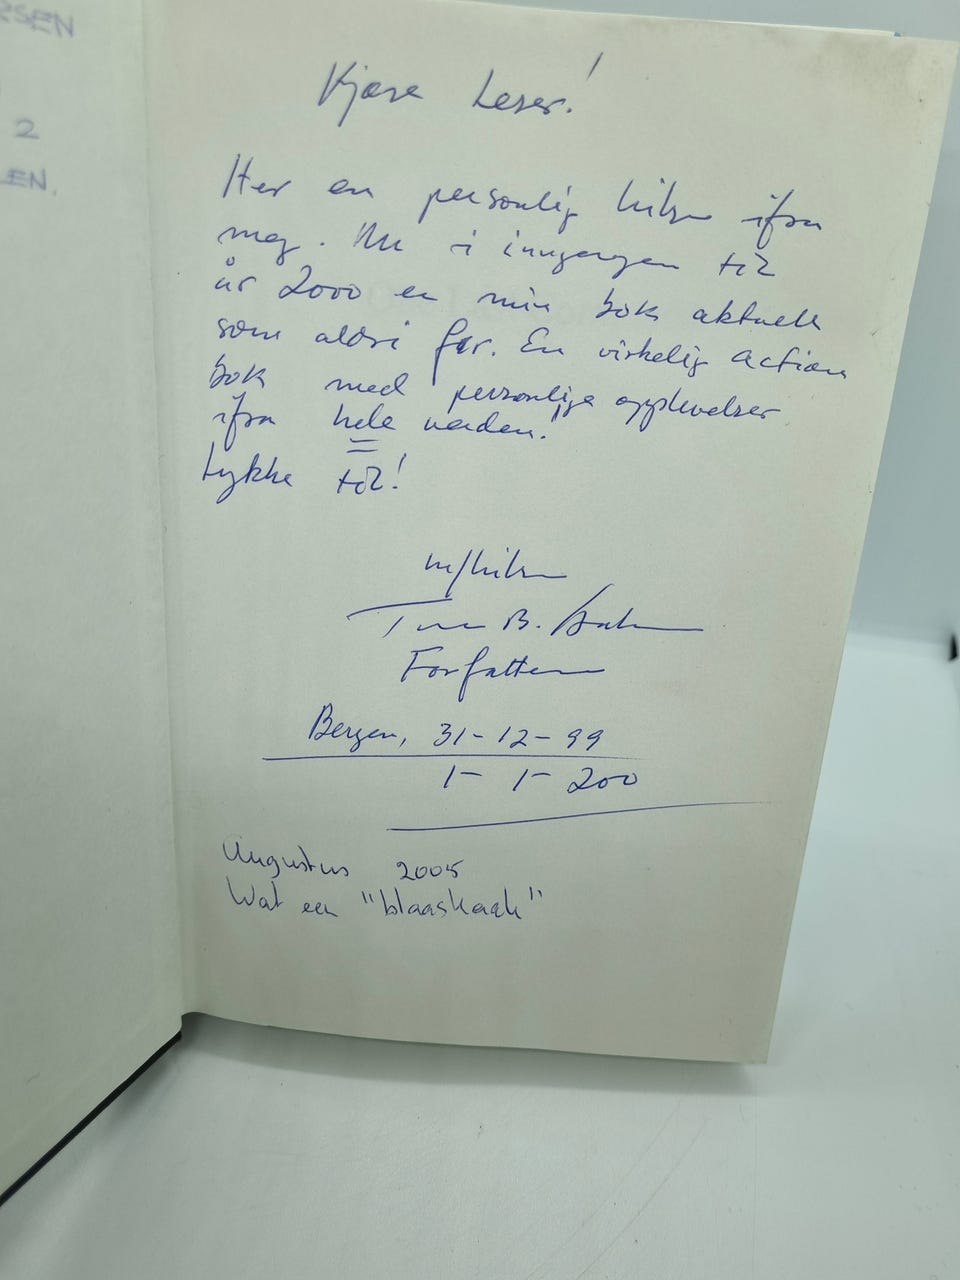 RSEN
2
LEN.
Kjære Leser!
Her en personlig hilsen ifra
meg. Nu i inngangen til
år 2000 er min bok aktuell
som aldri før. En virkelig action
bok med personlige opplevelser
ifra hele verden!
Lykke til!
m/hilsen
B.
Forfatter
Bergen, 31-12-99
1- 1- 200
Augustus 2005
Wat een "blaaskaak"